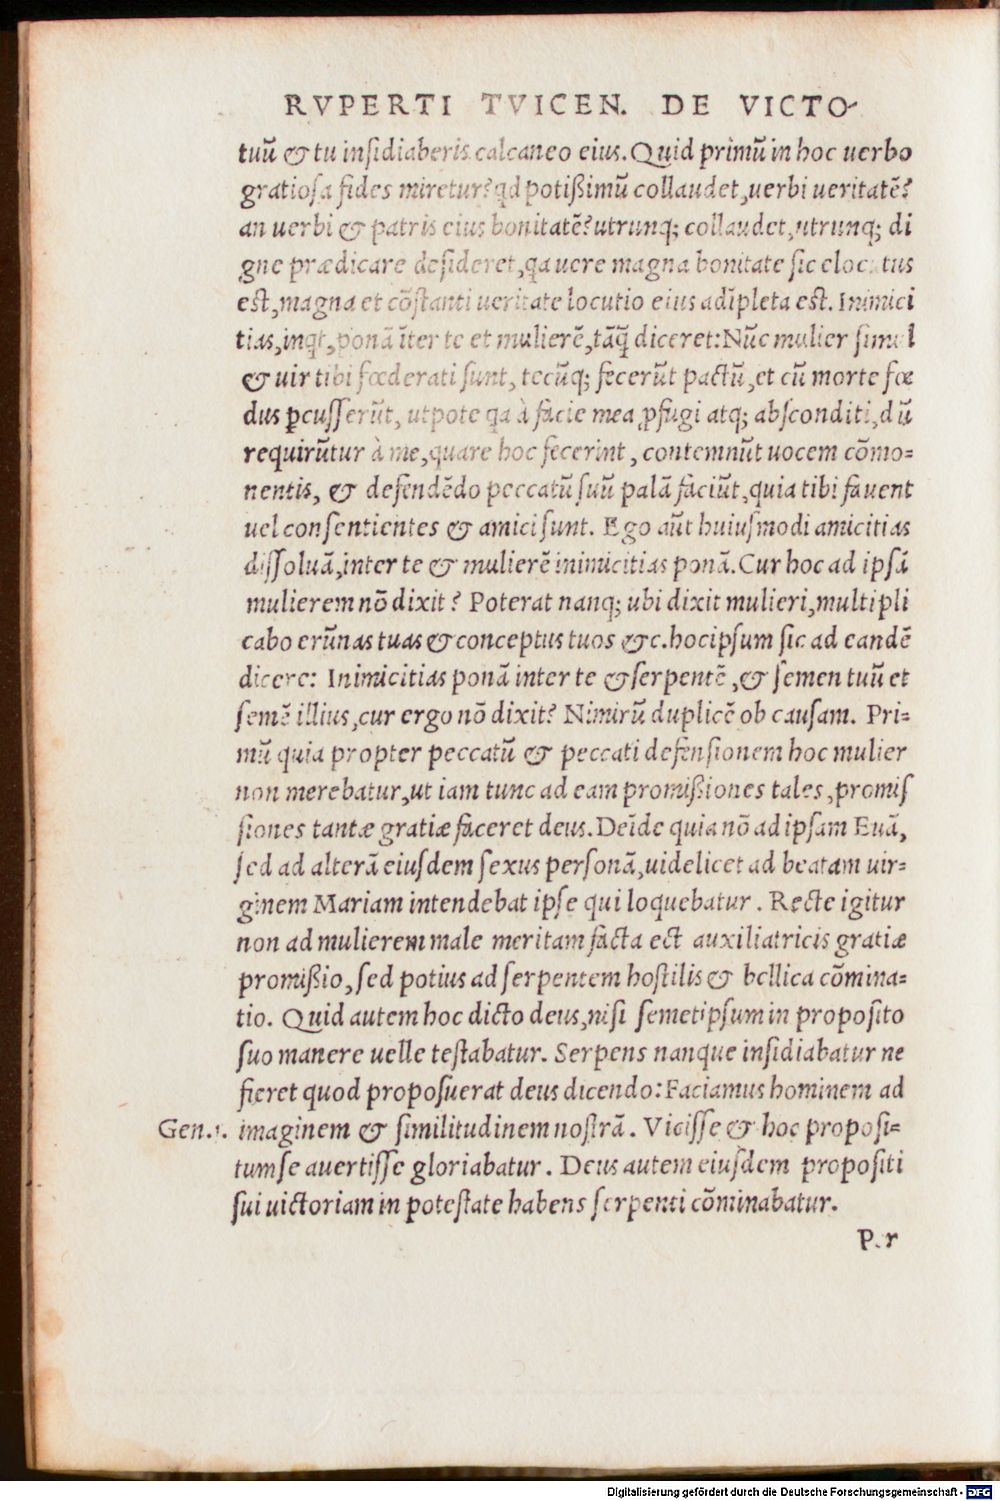 RVPERTI TVICEN. DE VICTO-
tuũ & tu insidiaberis calcaneo eius. Quid primũ in hoc uerbo
gratiosa fides miretur? qd potißimũ collaudet, uerbi ueritatẽ?
an uerbi & patris eius bonitatẽ? utrunq; collaudet, utrunq; di
gne prædicare desideret, qa uere magna bonitate sic elocutus
est, magna et cõstanti ueritate locutio eius adĩpleta est. Inimici
tias, inqt, ponã ĩter te et mulierẽ, tãq̃ diceret: Nũc mulier simul
& uir tibi fœderati sunt, tecũq; fecerũt pactũ, et cũ morte fœ
dus ꝑcusserũt, utpote qa à facie mea ꝓfugi atq; absconditi, dũ
requirũtur à me, quare hoc fecerint, contemnũt uocem cõmo=
nentis, & defendẽdo peccatũ suũ palã faciũt, quia tibi fauent
uel consentientes & amici sunt. Ego aũt huiusmodi amicitias
dissoluã, inter te & mulierẽ inimicitias ponã. Cur hoc ad ipsã
mulierem nõ dixit? Poterat nanq; ubi dixit mulieri, multipli
cabo erũnas tuas & conceptus tuos &c. hoc ipsum sic ad eandẽ
dicere: Inimicitias ponã inter te & serpentẽ, & semen tuũ et
semẽ illius, cur ergo nõ dixit? Nimirũ duplicẽ ob causam. Pri=
mũ quia propter peccatũ & peccati defensionem hoc mulier
non merebatur, ut iam tunc ad eam promißiones tales, promis
siones tantæ gratiæ faceret deus. Deĩde quia nõ ad ipsam Euã,
sed ad alterã eiusdem sexus personã, uidelicet ad beatam uir=
ginem Mariam intendebat ipse qui loquebatur. Recte igitur
non ad mulierem male meritam facta est auxiliatricis gratiæ
promißio, sed potius ad serpentem hostilis & bellica cõmina=
tio. Quid autem hoc dicto deus, nisi semetipsum in proposito
suo manere uelle testabatur. Serpens nanque insidiabatur ne
fieret quod proposuerat deus dicendo: Faciamus hominem ad
Gen.1. imaginem & similitudinem nostrã. Vicisse & hoc proposi=
tum se auertisse gloriabatur. Deus autem eiusdem propositi
sui uictoriam in potestate habens serpenti cõminabatur.
P.r
Digitalisierung gefördert durch die Deutsche Forschungsgemeinschaft - DFG